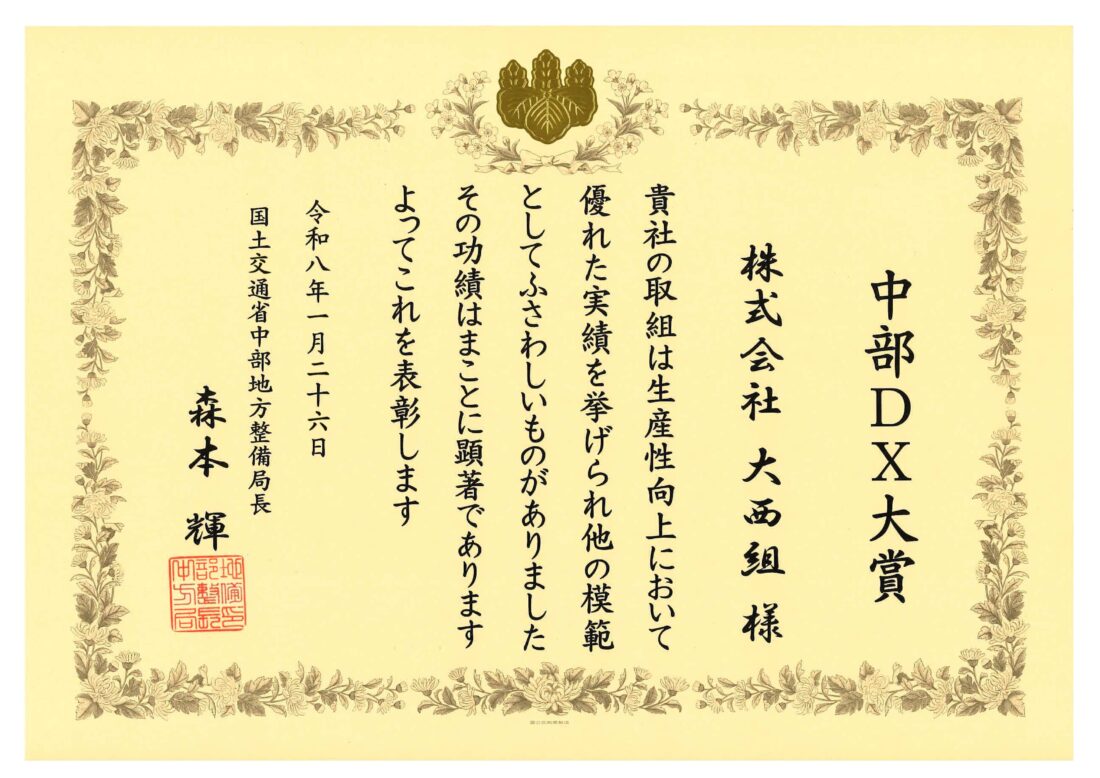 中部DX大賞
株式会社 大西組 様
貴社の取組は生産性向上において
優れた実績を挙げられ他の模範
としてふさわしいものがありました
その功績はまことに顕著であります
よってこれを表彰します
令和八年一月二十六日
国土交通省中部地方整備局長
森本 輝